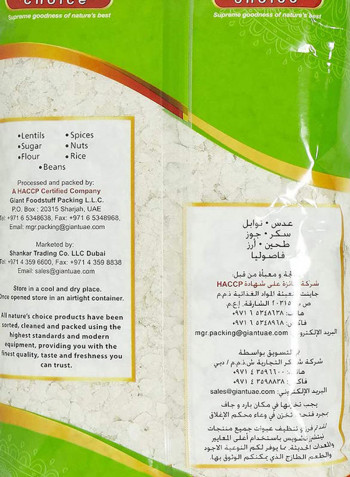 choice
Supreme goodness of nature's best
•Lentils •Spices
•Sugar •Nuts
•Flour •Rice
•Beans
Processed and packed by:
A HACCP Certified Company
Giant Foodstuff Packing L.L.C.
P.O. Box : 20315 Sharjah, UAE
Tel: +971 6 5348638, Fax: +971 6 5348968,
Email: mgr.packing@giantuae.com
Marketed by:
Shankar Trading Co. LLC Dubai
Tel: +971 4 359 6600, Fax: +971 4 359 8838
Email: sales@giantuae.com
Store in a cool and dry place.
Once opened store in an airtight container.
All nature's choice products have been
sorted, cleaned and packed using the
highest standards and modern
equipment, providing you with the
finest quality, taste and freshness you
can trust.
choice
Supreme goodness of nature's best
عدس • توابل
سكر • جوز
طحين • أرز
فاصوليا
ومعبأة من قبل:
شركة حائزة على شهادة HACCP
جاينت لتعبئة المواد الغذائية ذ.م.م
ص ب ٢٠٣١٥ الشارقة، إ.ع.م
٩٧١ ٦ ٥٣٤٨٦٣٨
فاكس: ٩٧١ ٦ ٥٣٤٨٩٦٨
البريد الإلكتروني: mgr.packing@giantuae.com
التسويق بواسطة
شركة شنكر التجارية ش.ذ.م.م / دبي
٩٧١ ٤ ٣٥٩٦٦٠٠
فاكس: ٩٧١ ٤ ٣٥٩٨٨٣٨
البريد الإلكتروني: sales@giantuae.com
يجب تخزينها في مكان بارد وجاف
بمجرد فتحها تخزن في وعاء محكم الإغلاق
لقد تم فرز وتنظيف عبوات جميع منتجات
نيتشرز تشويس باستخدام أعلى المعايير
والمعدات الحديثة، مما يوفر لكم النوعية الأجود
والطعم الطازج الذي يمكنكم الوثوق بها.